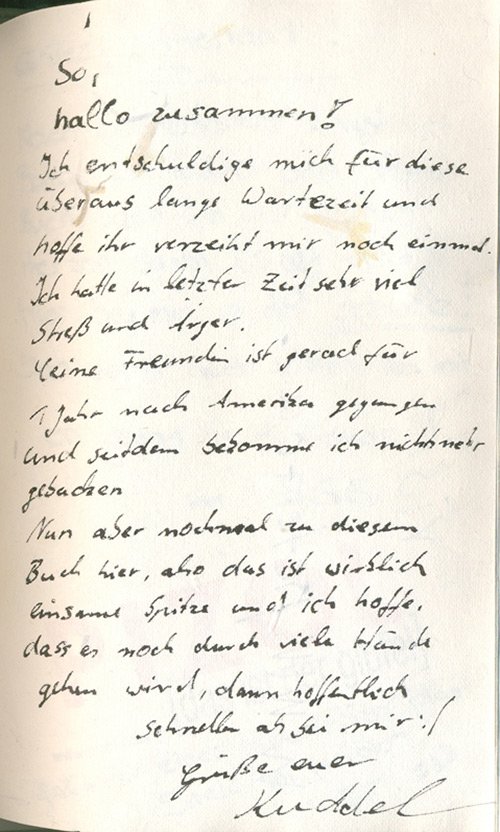 So,
hallo zusammen!
Ich entschuldige mich für diese
überaus lange Wartezeit und
hoffe ihr verzeiht mir noch einmal.
Ich hatte in letzter Zeit sehr viel
Streß und Ärger.
Meine Freundin ist gerad für
1 Jahr nach Amerika gegangen
und seitdem bekomme ich nichtmehr
gebacken
Nun aber nochmal zu diesem
Buch hier, also das ist wirklich
einsame Spitze und ich hoffe,
dass es noch durch viele Hände
gehen wird, dann hoffentlich
schneller als bei mir :/
Grüße euer
Kuddel